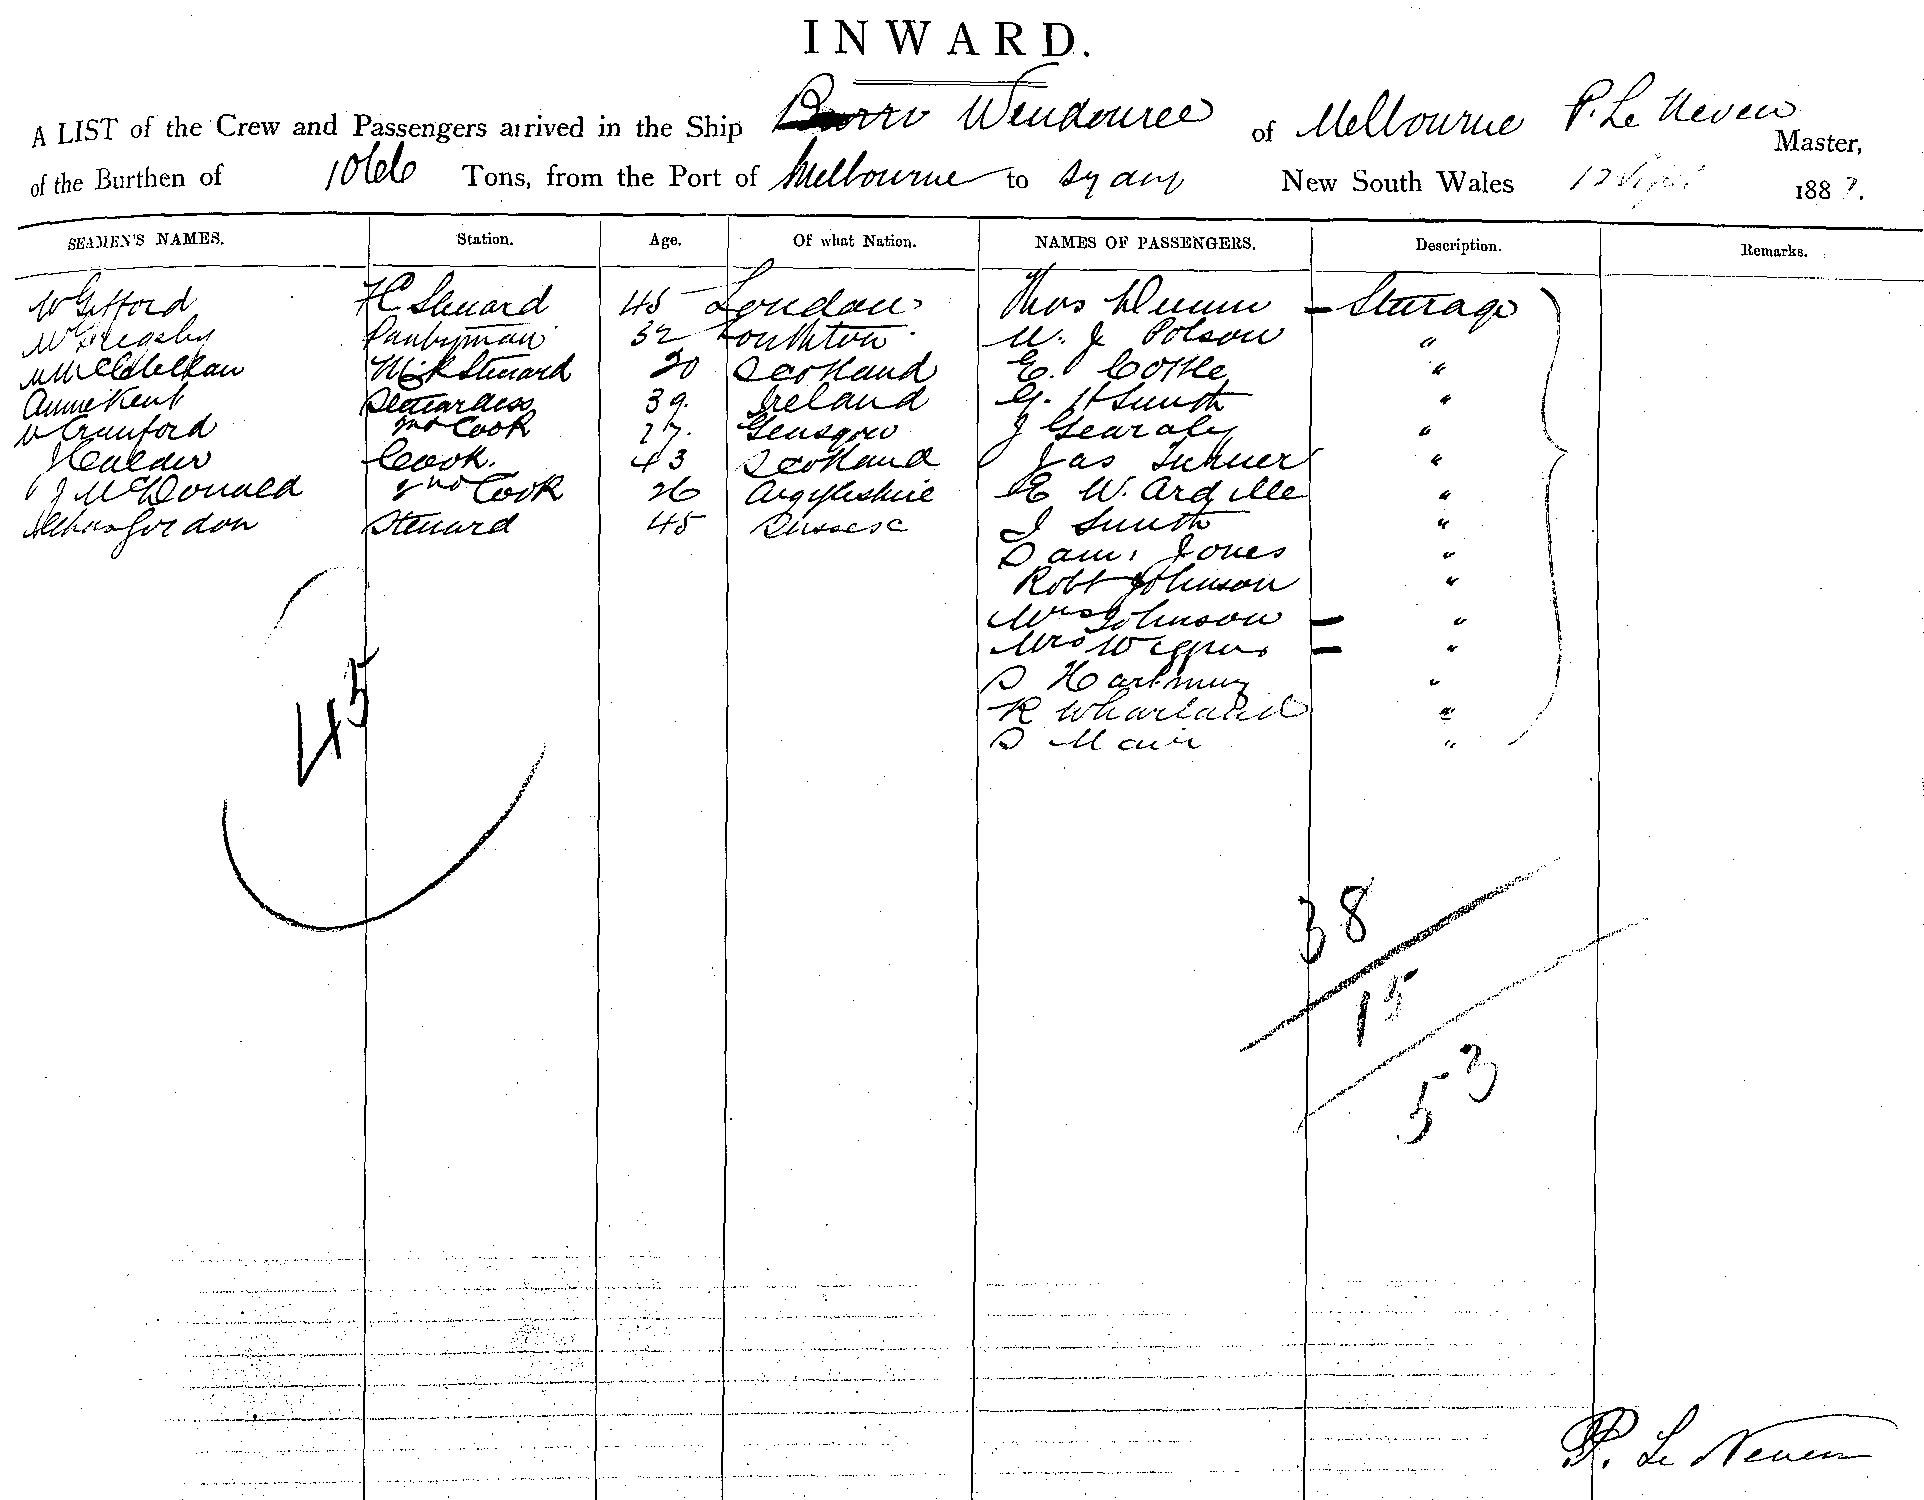 INWARD.
A LIST of the Crew and Passengers arrived in the Ship Wendouree of Melbourne P. Le Neven Master,
of the Burthen of 1066 Tons, from the Port of Melbourne to Sydney New South Wales 12 Sept 188
SEAMEN'S NAMES. Station. Age. Of what Nation. NAMES OF PASSENGERS. Description. Remarks.
W Gifford Steward 45 London Thos Dunn — Steerage
W Grigsby Pantryman 32 W. J Polson "
Steward 20 Scotland E. Cottle "
Annie Kent Stewardess 39 Ireland G. H Smith "
W Cranford Cook Glasgow J Gearaly "
J Calder Cook. 43 Scotland Jas Turner "
J McDonald 2nd Cook 26 Argyleshire E W. Ardille "
Gordon Steward 45 Sussex J Smith "
Sam. Jones "
Robt Johnson "
Mrs Johnson — "
Mrs — "
S "
R Wharland "
S Mair "
45
38
15
53
P. Le Neven